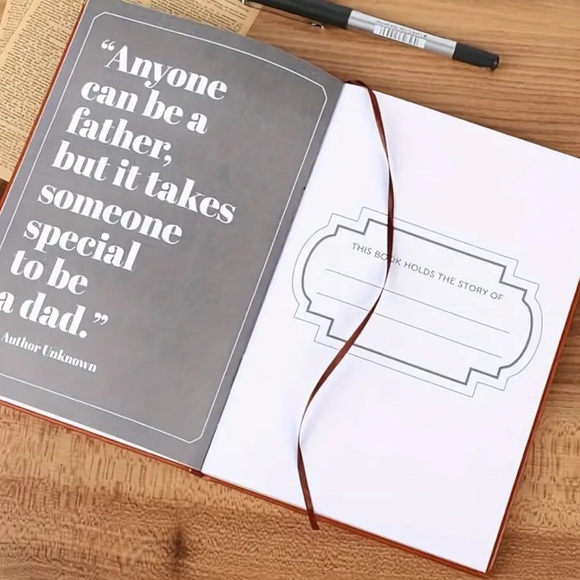 “Anyone
can be a
father,
but it takes
someone
special
to be
a dad.”
Author Unknown
THIS BOOK HOLDS THE STORY OF